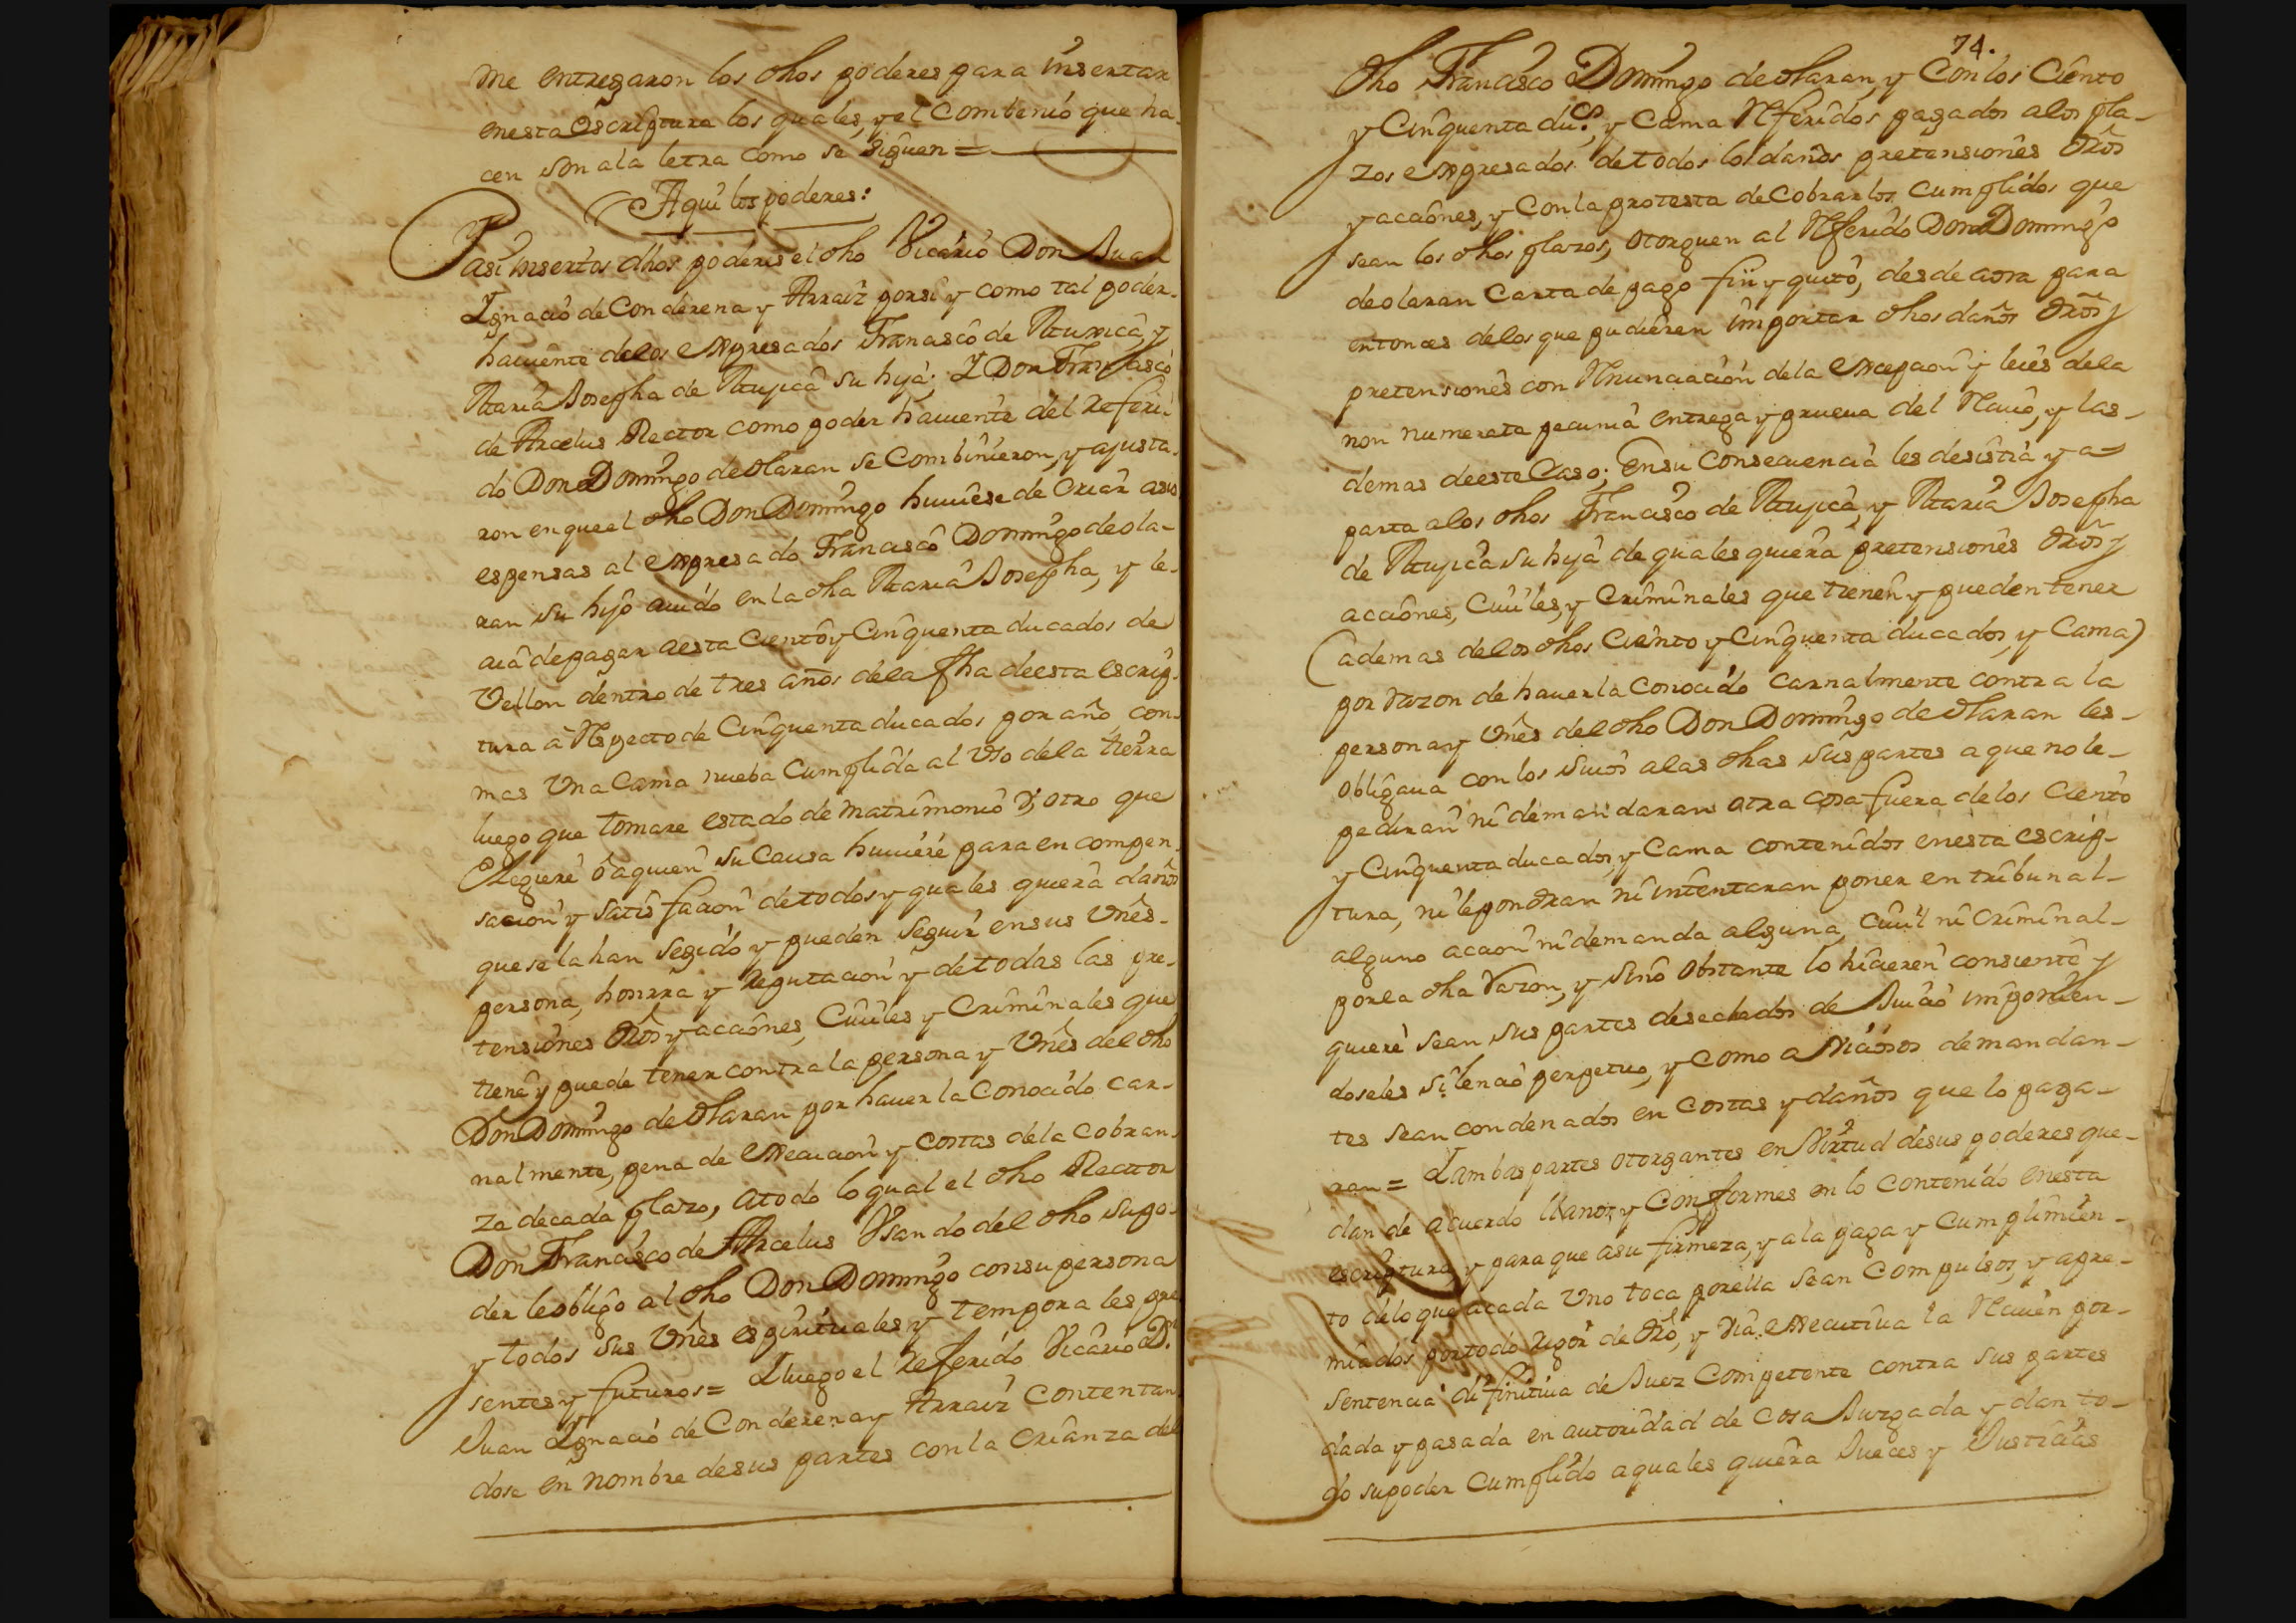 me entregaron los dhos poderes para insertar
en esta escriptura los quales, y el combenio que ha-
cen son a la letra como se siguen =
Aqui los poderes:
Y asi insertos dhos poderes el dho Vicario Don Juan
Ygnacio de Conderena y Arraiz por si y como tal poder-
haviente de los expresados Francisco de Mujica, y
Maria Josepha de Mujica su hija; Y Don Francisco
de Arcelus Rector como poder haviente del referi-
do Don Domingo de olaran se combinieron, y ajusta-
ron en que el dho Don Domingo huviese de criar a sus
espensas al expresado Francisco Domingo de ola-
ran su hijo auido en la dha Maria Josepha, y le-
aia de pagar a esta ciento y cinquenta ducados de
Vellon dentro de tres años de la fha de esta escrip-
tura à respecto de cinquenta ducados por año con-
mas Una Cama nueba cumplida al Uso de la tierra
luego que tomare estado de matrimonio, u, otro que
eligiere ô a quien su Causa huviere para en compen-
sacion y satisfacion de todos y quales quiera daños
que se la han segido y pueden seguir en sus Vnes-
persona, honrra y reputacion y de todas las pre-
tensiones dros y acciones, Ciuiles y Criminales que
tiene y puede tener contra la persona y Vnes del dho
Don Domingo de olaran por hauerla conocido car-
nalmente, pena de execucion y costas de la cobran-
za de cada plazo, a todo lo qual el dho Rector
Don Francisco de Arcelus Usando del dho su po-
der le obligo al dho Don Domingo con su persona
y todos sus Vnes espirituales y temporales pre
sentes y futuros = Y luego el referido Vicario Dn
Juan Ygnacio de Conderena y Arraiz contentan-
dose en nombre de sus partes con la crianza del
74.
dho Francisco Domingo de olaran, y con los Ciento
y Cinquenta dus, y Cama referidos pagados a los pla-
zos expresados de todos los daños pretensiones dros
y acciones, y con la protesta de cobrarlos cumplidos que
sean los dhos plazos, otorguen al referido Don Domingo
de olaran carta de pago fin y quito, desde aora para
entonces de los que pudieren importar dhos daños dros y
pretensiones con renunciacion de la excepcion y leies de la
non numerata pecunia entrega y prueua del reciuo, y las-
demas de este Caso; En su consecuencia les desistia y a-
parta a los dhos Francisco de Mujica, y Maria Josepha
de Mujica su hija de quales quiera pretensiones dros y
acciones, Ciuiles, y Criminales que tienen y pueden tener
(ademas de los dhos ciento y cinquenta ducados, y Cama)
por razon de hauerla conocido carnalmente contra la
persona y Vnes del dho Don Domingo de olaran les-
obligaua con los suios a las dhas sus partes a que no le-
pediran ni demandaran otra cosa fuera de los Ciento
y Cinquenta ducados, y Cama contenidos en esta escrip-
tura, ni le pondran ni intentaran poner en tribunal-
alguno accion ni demanda alguna, ciuil ni criminal-
por la dha razon, y si no obstante lo hicieren consiente y
quiere sean sus partes desechados de Juicio imponien-
doseles silencio perpetuo, y como a viciosos demandan-
tes sean condenados en costas y daños que lo paga-
ran = Y ambas partes otorgantes en virtud de sus poderes que-
dan de acuerdo llanos, y conformes en lo contenido en esta
escriptura, y para que a su firmeza, y a la paga y cumplimien-
to de lo que a cada Uno toca por ella sean compulsos, y apre-
miados por todo rigor de dro, y via executiua la reciuen por-
sentencia difinitiua de Juez Competente contra sus partes
dada y pasada en autoridad de cosa Juzgada y dan to-
do su poder cumplido a quales quiera Jueces y Justicias